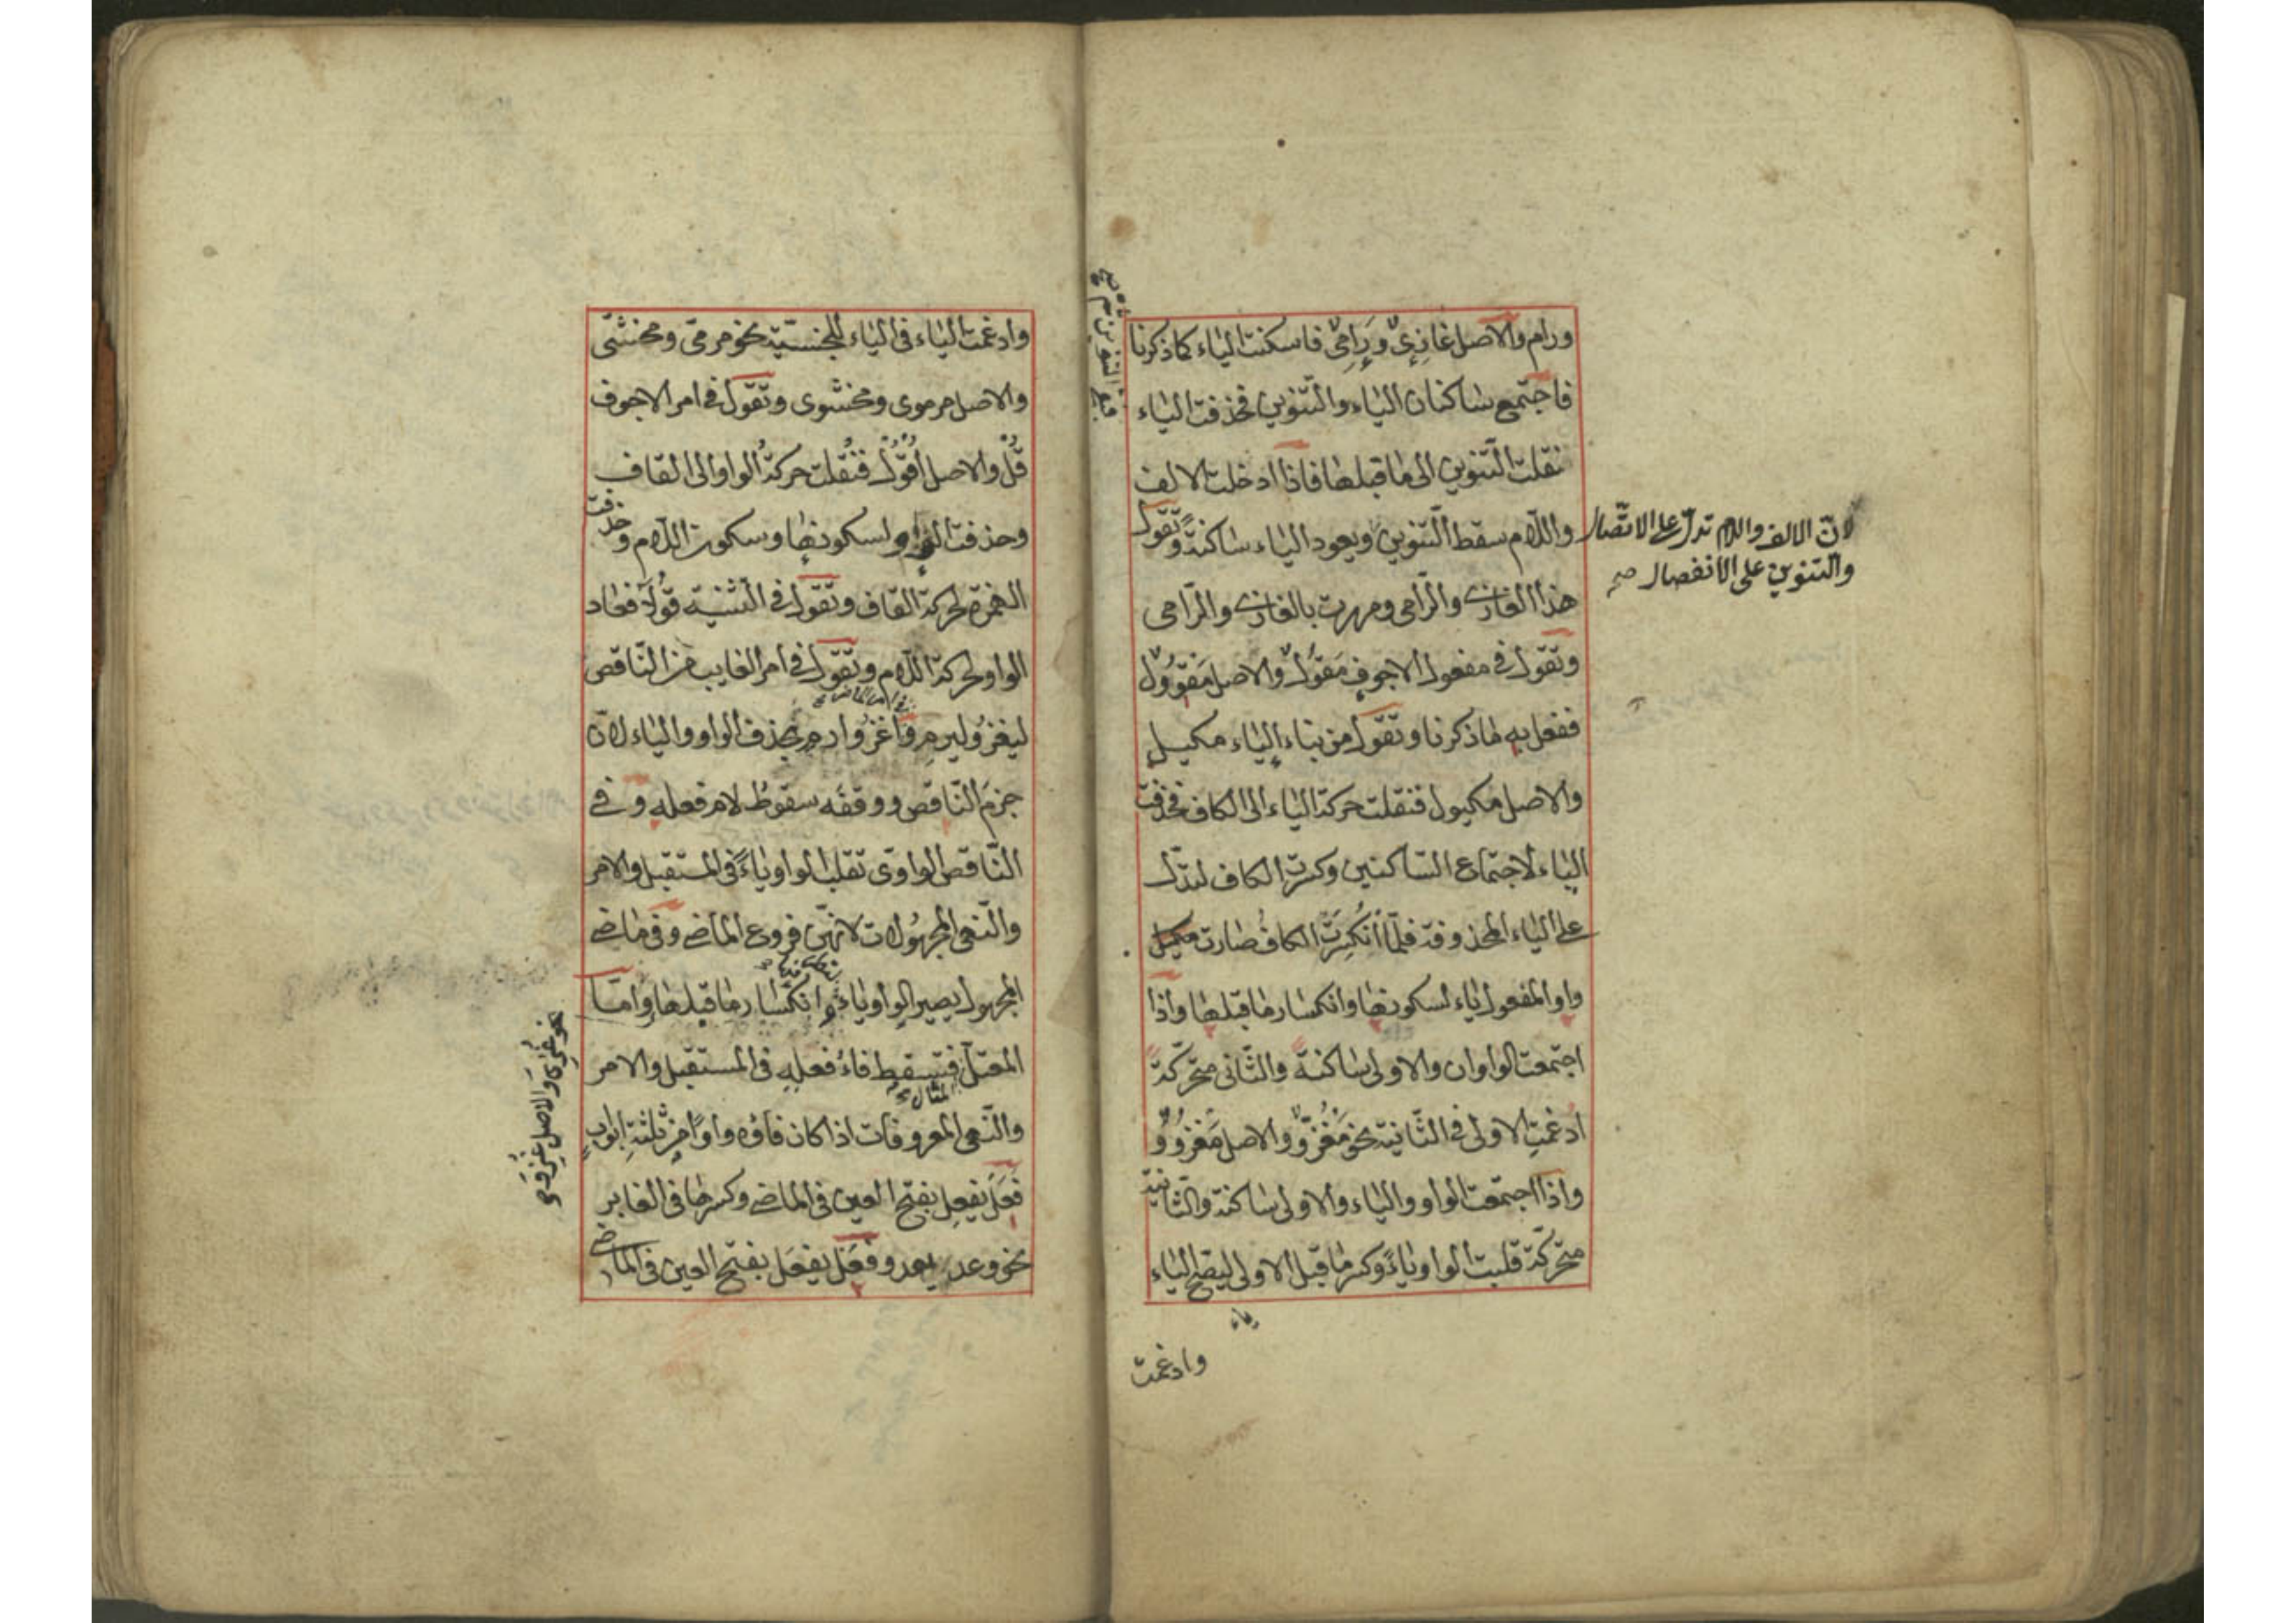 ورام والاصل غازِىٌ ورَامِىٌ فاسكنت الياء كما ذكرنا
فاجتمع ساكنان الياء والتنوين فحذفت الياء
نقلت التنوين الى ما قبلها فاذا ادخلت الالف
واللام سقط التنوين ويعود الياء ساكنة وتقول
لانّ الالف واللام تدلّ على الاتّصال
والتنوين على الانفصال صح
هذا الغازى والرّامى ومررت بالغازى والرّامى
وتقول فى مفعول الاجوف مَقُولٌ والاصل مَقْوُولٌ
ففعل به ما ذكرنا وتقول من بناء الياء مكيل
والاصل مكيول فنقلت حركة الياء الى الكاف فحذفت
الياء لاجتماع الساكنين وكسرت الكاف لتدلّ
على الياء المحذوفة فلمّا انكسرت الكاف صارت مكيل
واو المفعول ياء لسكونها وانكسار ما قبلها واذا
اجتمعت الواوان والاولى ساكنة والثّانى متحرّكة
ادغمت الاولى فى الثّانية نحو مَغْزُوٌّ والاصل مَغْزُوْوٌ
واذا اجتمعت الواو والياء والاولى ساكنة والثّانية
متحرّكة قلبت الواو ياءً وكسر ما قبل الاولى ليصحّ الياء
ياء
وادغمت
وادغمت الياء فى الياء للجنسيّة نحو مرمىّ ومخشىّ
والاصل مرموى ومخشوى وتقول فى امر الاجوف
قُلْ والاصل اُقْوُلْ فنُقلت حركة الواو الى القاف
وحذفت الواو لسكونها وسكون اللام وحذفت
الهمزة لحركة القاف وتقول فى التثنية قُولَا فعاد
الواو لحركة اللام وتقول فى امر الغايب من النّاقص
ليغزُ وليرمِ واغزُ وارمِ بحذف الواو والياء لانّ
جزمَ النّاقص ووقفَه سقوطُ لام فعله وفى
النّاقص الواوى تقلب الواو ياءً فى المستقبل والامر
والنّهى المجهولات لانهنّ فروع الماضى وفى ماضى
المجهول يصير الواو ياءً وانكسار ما قبلها وامّا
المعتلّ فتسقط فاءُ فعلِه فى المستقبل والامر
المثال
والنّهى المعروفات اذا كان فاؤه واوًا من ثلثةِ ابوابٍ
فعَلَ يفعِل بفتح العين فى الماضى وكسرها فى الغابر
نحو وعد يعد وفعَل يفعَل بفتح العين فى الماضى
نحو غُزِىَ والاصل غُزِوَ